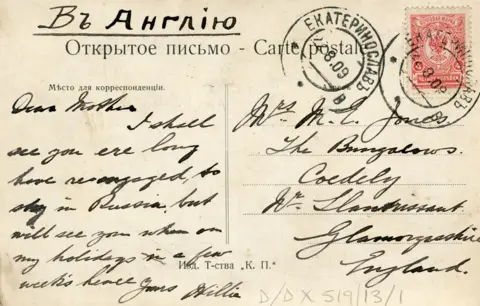 Въ Англію
Открытое письмо - Carte postale
ЕКАТЕРИНОСЛАВЪ
8.09
ЕКАТЕРИНОСЛАВЪ
8.09
Мѣсто для корреспонденціи.
Dear Mother
I shall
see you ere long
have re-engaged, to
stay in Russia, but
will see you when on
my holidays in a few
week's hence
Yours Willie
Mrs M. E. Jones.
The Bungalows.
Coedely
Nr. Llantrissant
Glamorganshire
England.
Изд. Т-ства „К. П."
D/D X 519/13/1